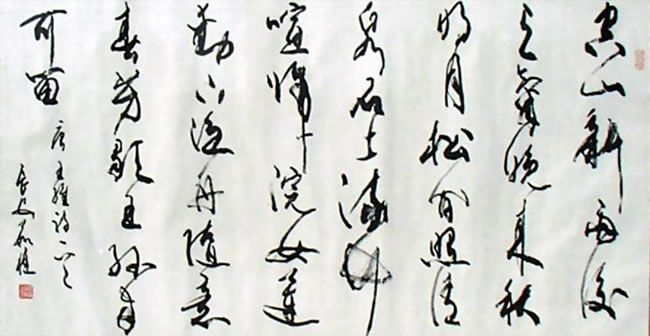 空山新雨後
天氣晚來秋
明月松間照清
泉石上流竹
喧歸浣女蓮
動下漁舟隨意
春芳歇王孫自
可留
唐王維詩一首
長安茹桂